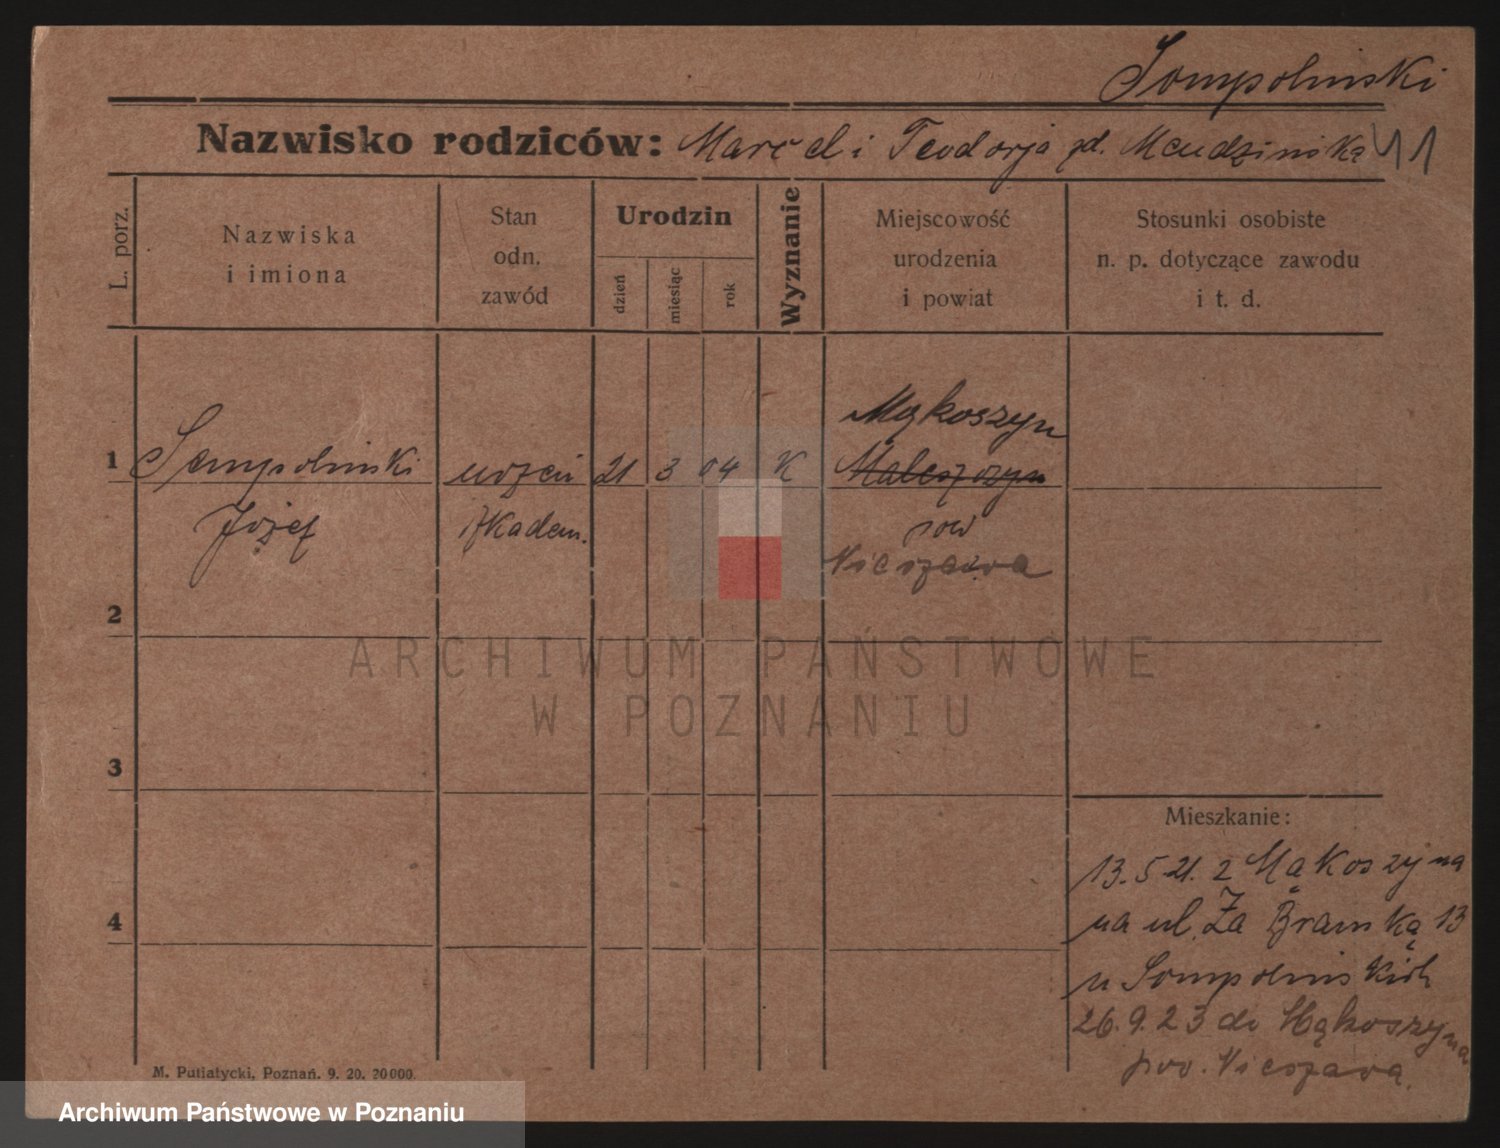 Sompolinski
Nazwisko rodziców: Marceli Teodorja zd. Mendziniską 11
L. porz.
Nazwiska
i imiona
Stan
odn.
zawód
Urodzin
dzień
miesiąc
rok
Wyznanie
Miejscowość
urodzenia
i powiat
Stosunki osobiste
n. p. dotyczące zawodu
i t. d.
Mąkoszyn
1 Sempolinski uczeń 21 3 04 K Maleszozyn
Józef Akadem. pow
Nieszawa
2
3
4
Mieszkanie:
13.5.21. z Mąkoszyna
na ul. Za Bramką 13
u Sompolinskich
26.9.23 do Mąkoszyna
pow. Nieszawa.
M. Putiatycki, Poznań. 9. 20. 20000.
ARCHIWUM PAŃSTWOWE
W POZNANIU
Archiwum Państwowe w Poznaniu